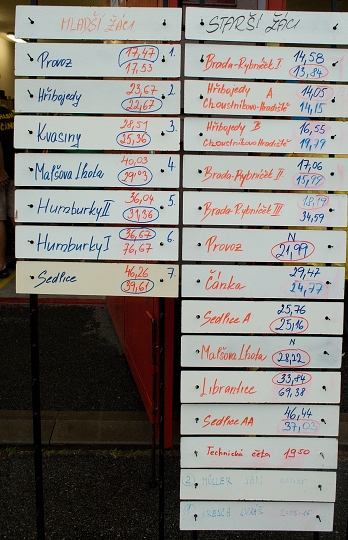 MLADŠÍ ŽÁCI
Provoz 17,47 1.
17,53
Hřibojedy 23,67 2.
22,67
Kvasiny 28,51 3.
25,36
Malšova Lhota 40,03 4.
Humburky II 36,04 5.
31,36
Humburky I 36,67 6.
76,67
Sedlice 46,26 7.
39,61
STARŠÍ ŽÁCI
Brada-Rybníček I 14,58
13,84
Hřibojedy A 14,05
Choustníkovo Hradiště 14,15
Hřibojedy B 16,55
Choustníkovo Hradiště 19,79
Brada-Rybníček II 17,06
15,99
Brada-Rybníček III 18,19
34,59
Provoz N
21,99
Čánka 29,47
24,77
Sedlice A 25,76
25,16
Malšova Lhota N
28,22
Librantice 33,84
69,38
Sedlice AA 46,44
37,03
Technická četa 19 50
MÜLLER JAN